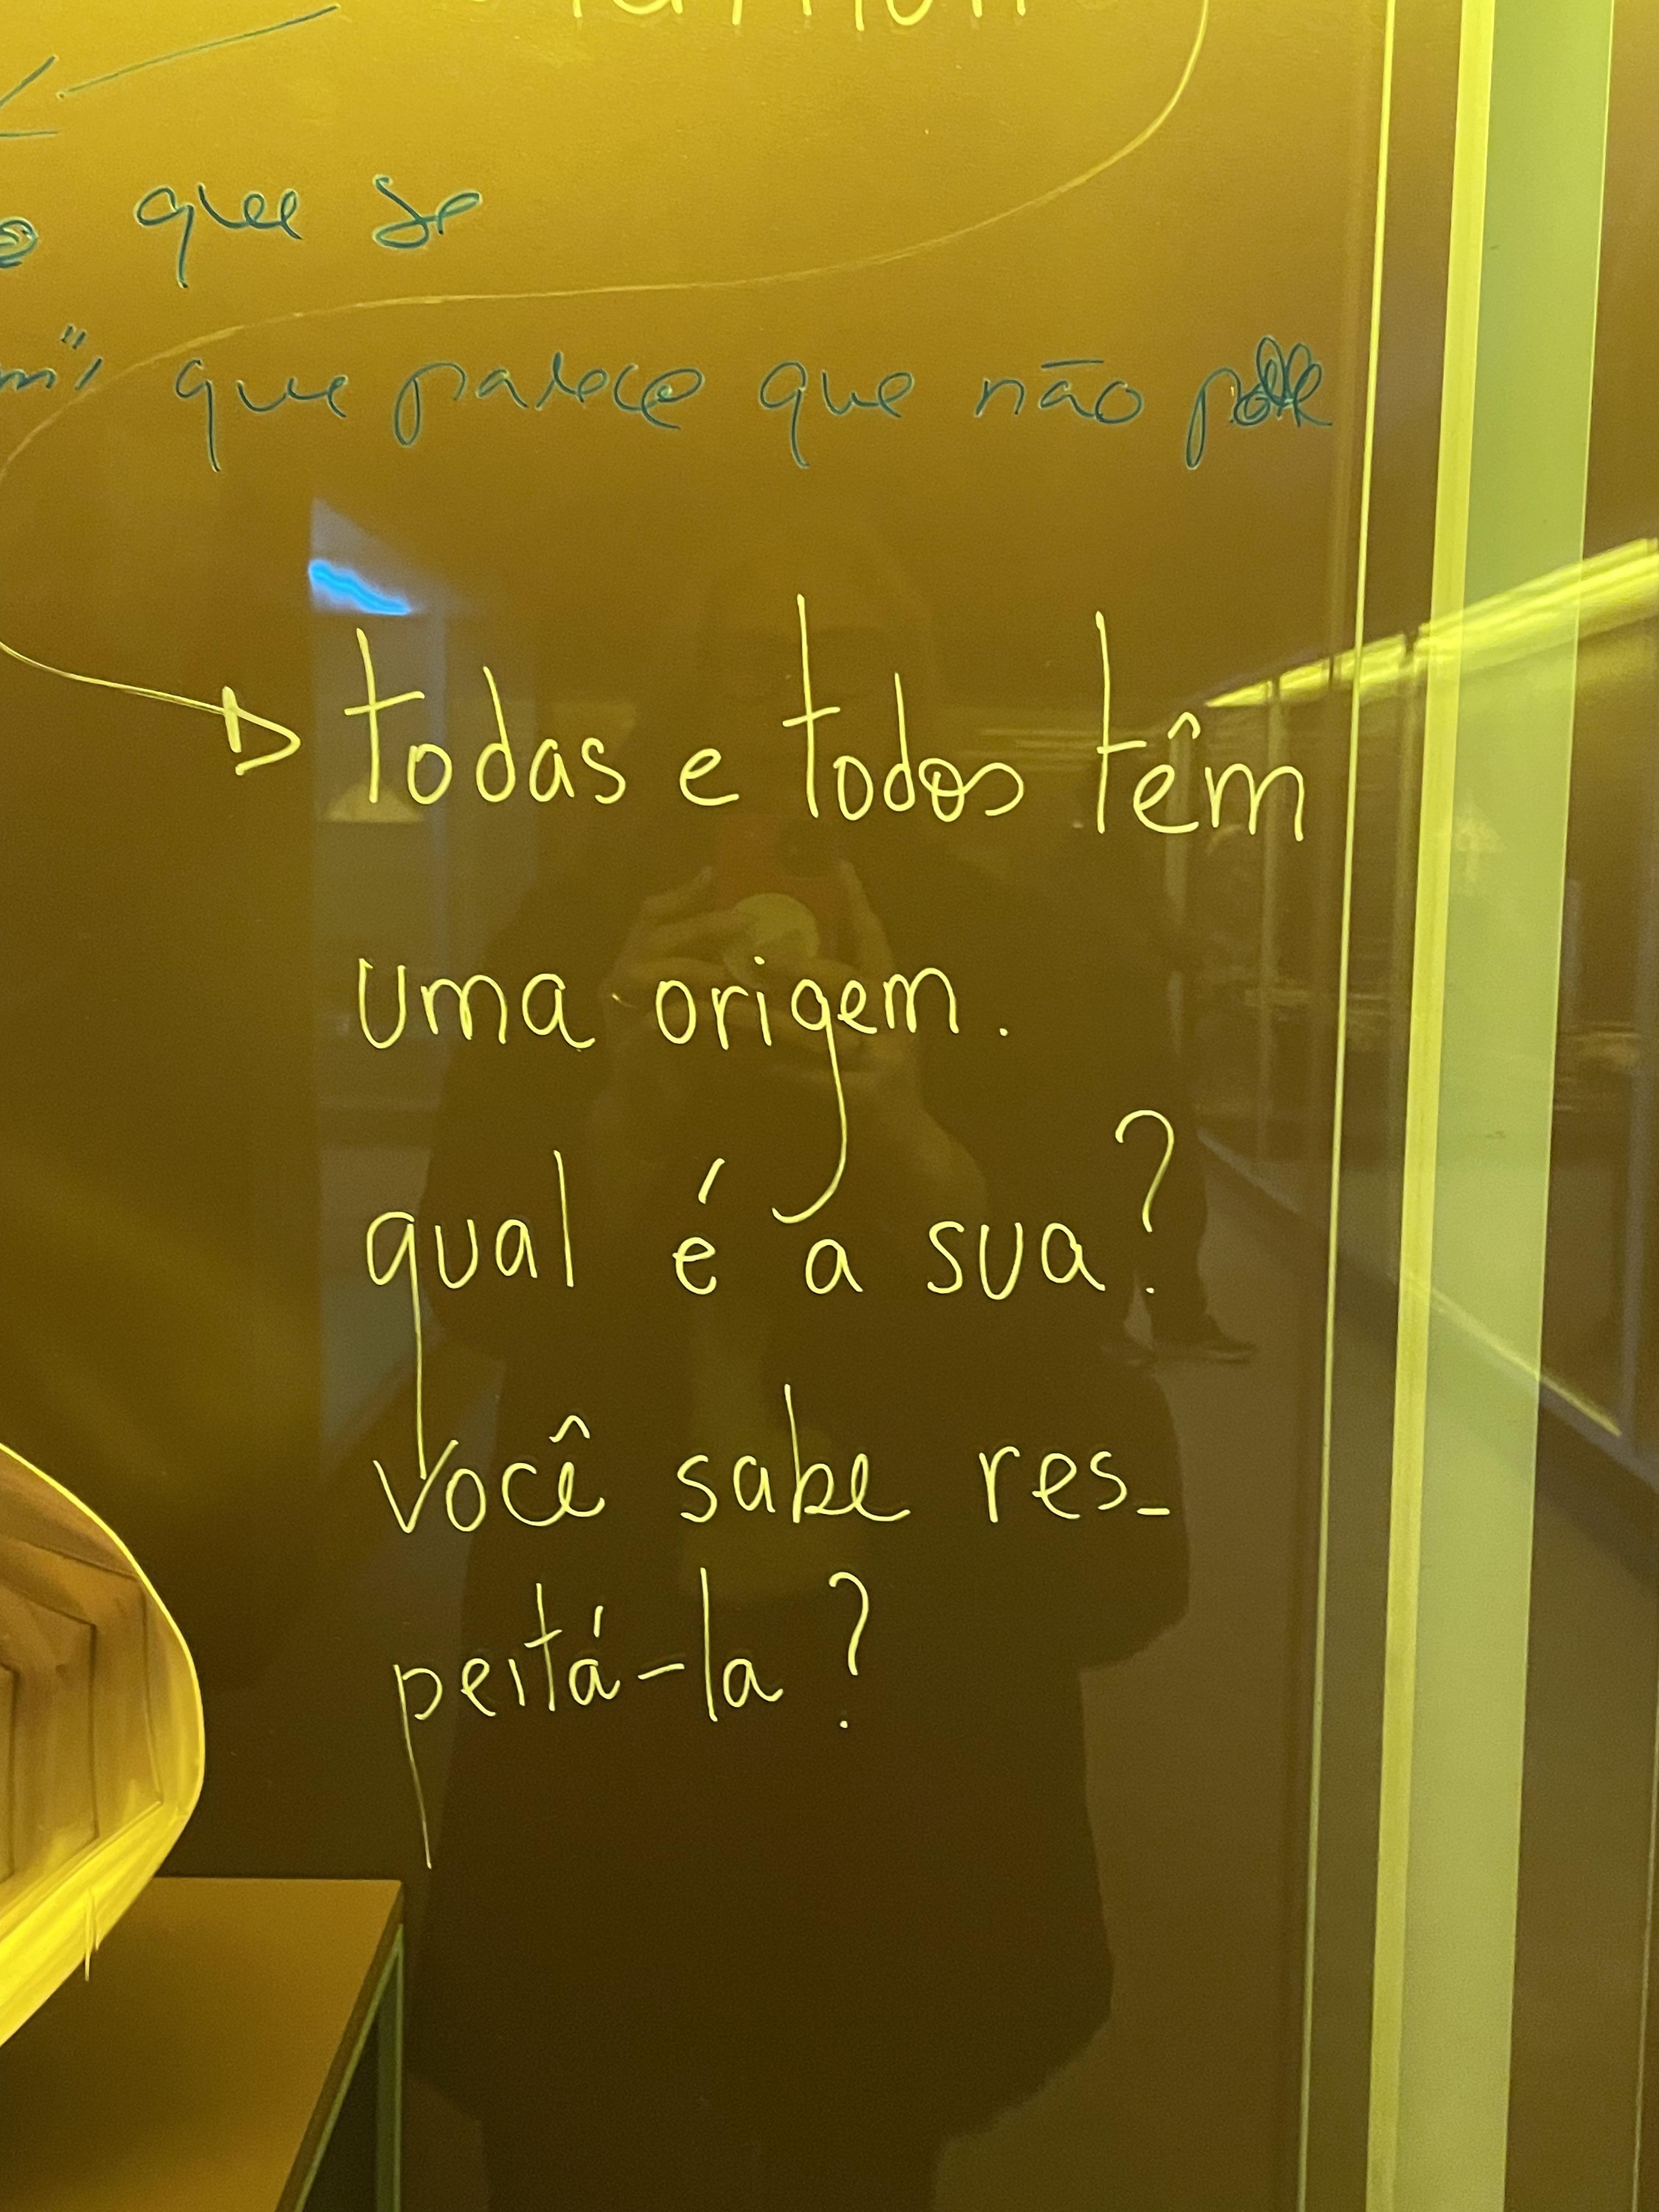 que se
que parece que não pode
todas e todos têm
uma origem.
qual é a sua?
você sabe res-
peitá-la?